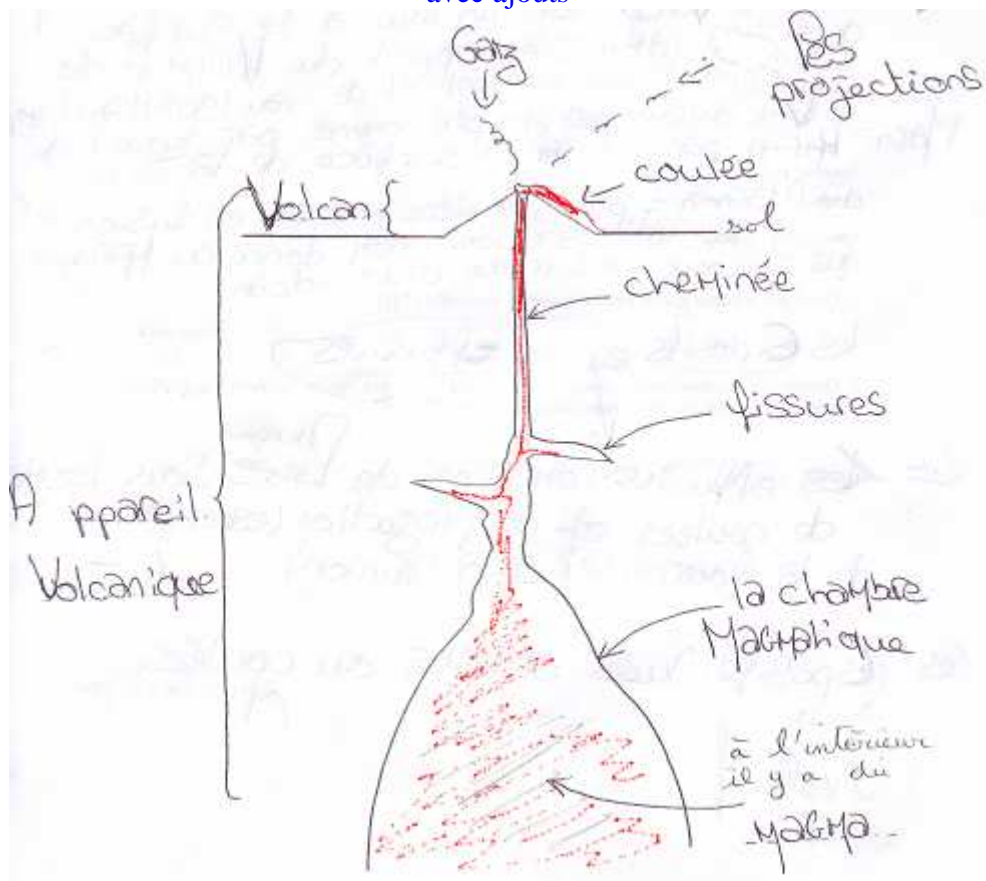 avec ajouts
Gaz
Des
projections
coulée
Volcan
sol
cheminée
fissures
Appareil
Volcanique
la chambre
Magmatique
à l'intérieur
il y a du
magma